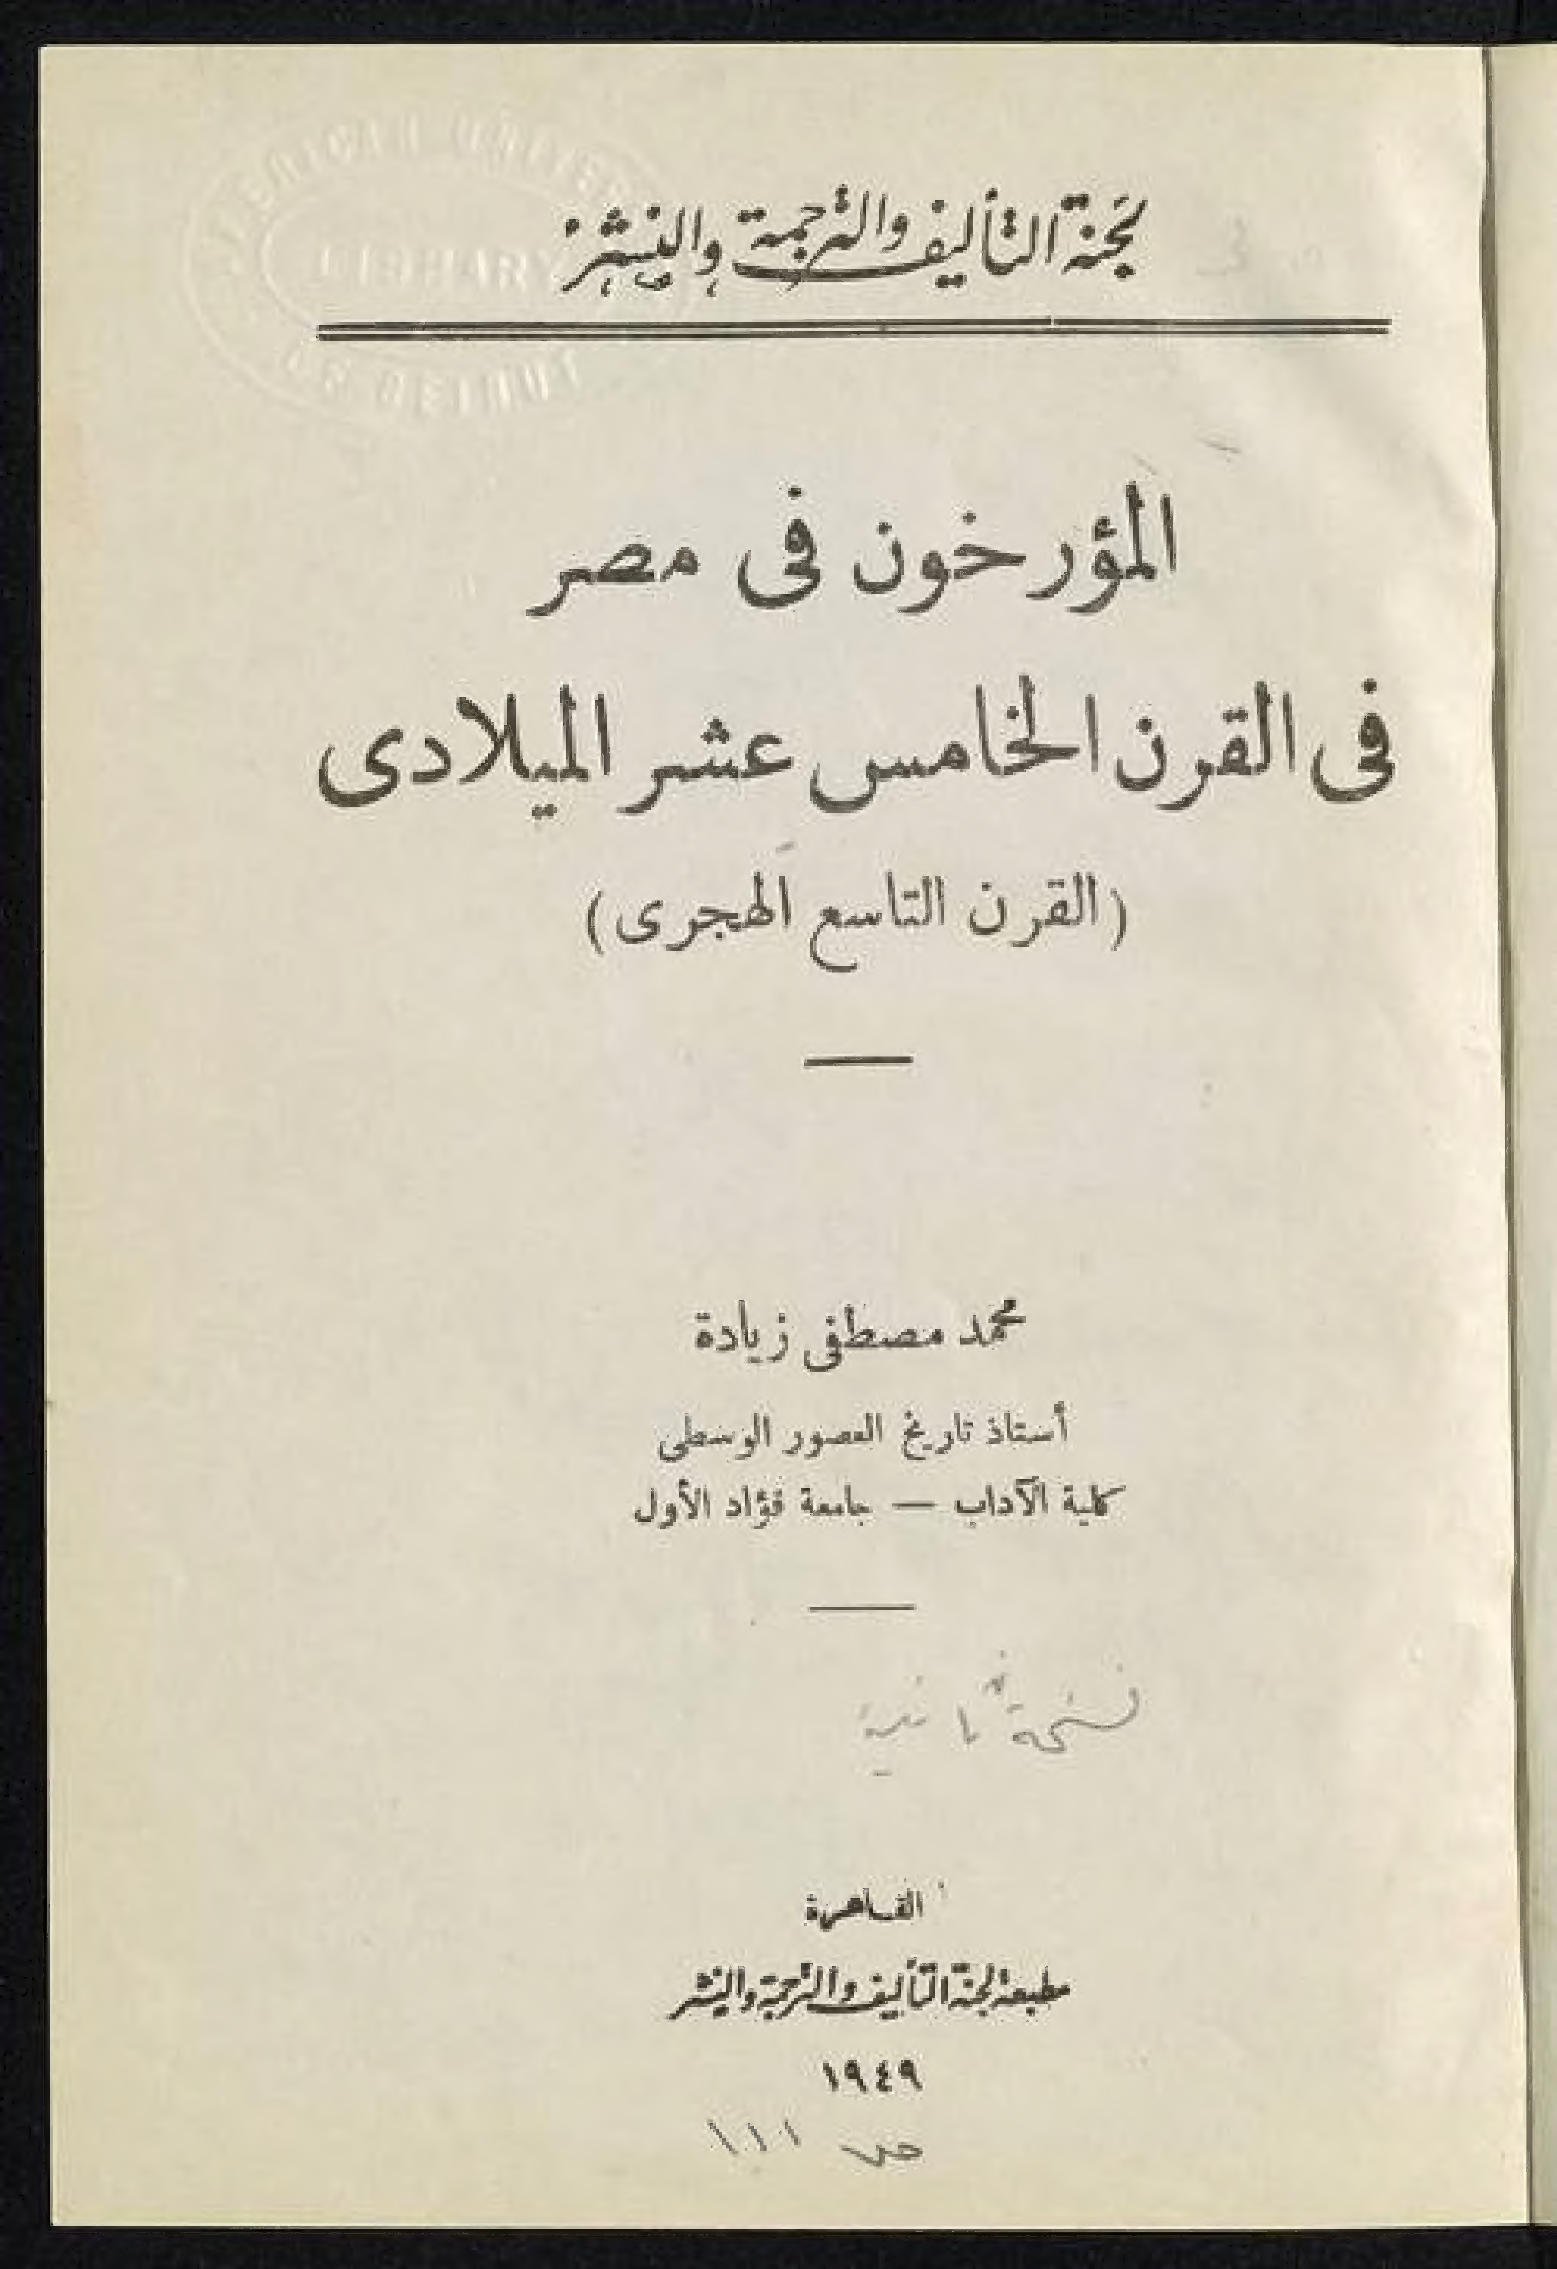 لجنة التأليف والترجمة والنشر
AMERICAN UNIVERSITY
LIBRARY
OF BEIRUT
المؤرخون فى مصر
فى القرن الخامس عشر الميلادى
(القرن التاسع الهجرى)
محمد مصطفى زيادة
أستاذ تاريخ العصور الوسطى
كلية الآداب — جامعة فؤاد الأول
نسخة ثانية
القاهرة
مطبعة لجنة التأليف والترجمة والنشر
١٩٤٩
ص ١١١